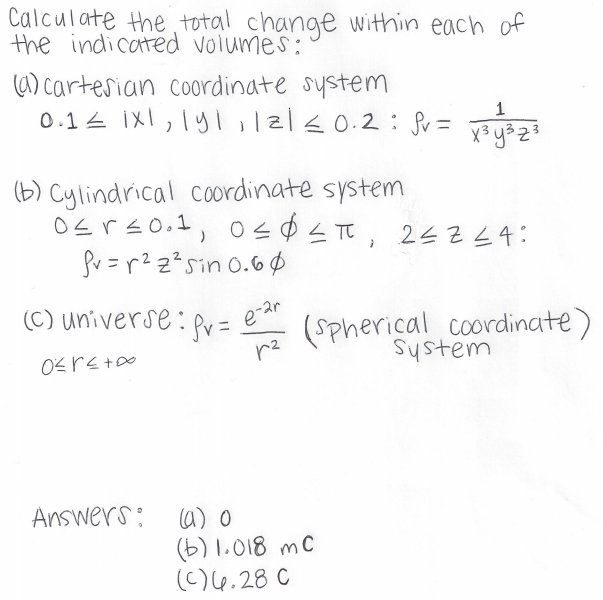 Calculate the total change within each of
the indicated volumes:
(a) cartesian coordinate system
0.1 ≤ |x|, |y|, |z| ≤ 0.2 : ρv = 1/(x³y³z³)
(b) Cylindrical coordinate system
0 ≤ r ≤ 0.1, 0 ≤ φ ≤ π, 2 ≤ z ≤ 4:
ρv = r² z² sin 0.6 φ
(c) universe: ρv = e^(-2r)/r² (spherical coordinate)
system
0 ≤ r ≤ +∞
Answers: (a) 0
(b) 1.018 mC
(c) 6.28 C